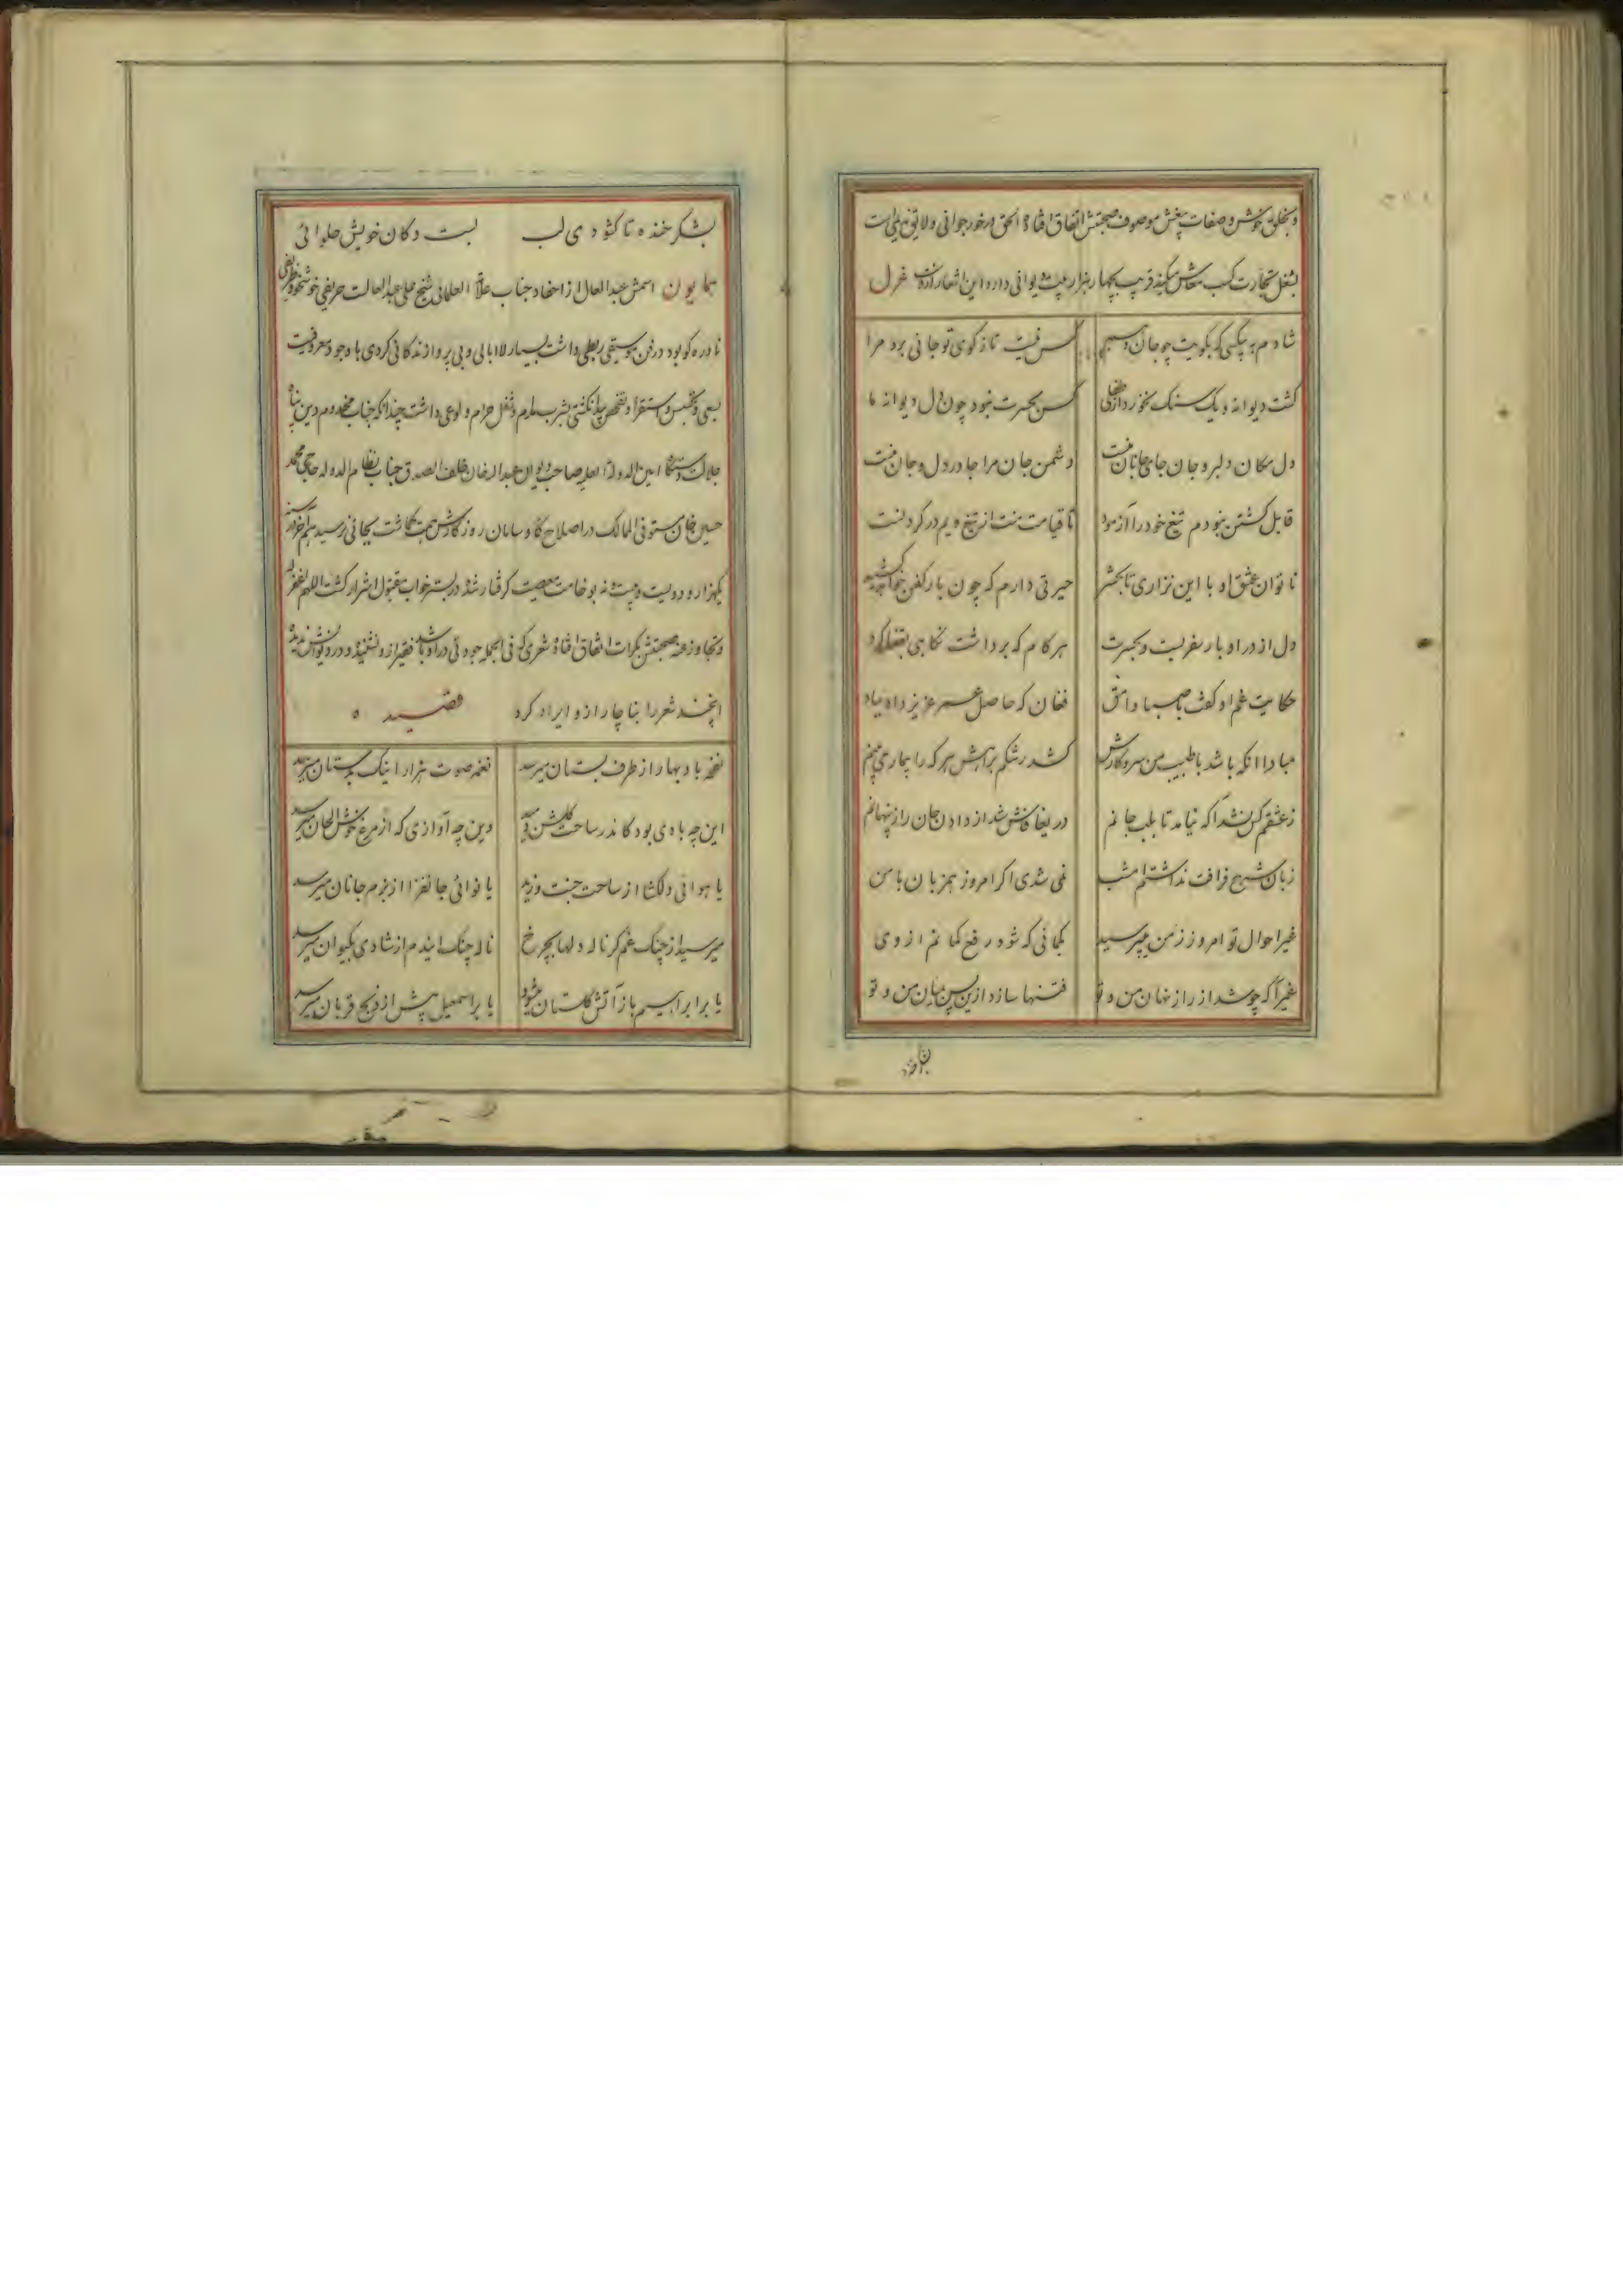 و بخلق خوش و صفات موصوف صحبتش اتفاق افتاده الحق در خور جوانی و لایق است
بشغل تجارت کسب معاش میکند قریب بچهار هزار بیت دیوانی دارد این اشعار ازوست غزل
شادم به بیکسی که بکویت چو جان کس نیست تا ز کوی تو جائی برد مرا
گشت دیوانه و یک سنک نخورد از کس بحسرت نبود چون دل دیوانه ما
دل مکان دلبر و جان جای جانان منست دشمن جان مرا جا در دل و جان منست
قابل کشتن نبودم تیغ خود را آزمود تا قیامت منت از تیغ ویم در گردنست
ناتوان عشق او با این نزاری تا بحشر حیرتی دارم که چون بار کفن خواهد کشید
دل از در او بار سفر بست و بحسرت هر کام که برداشت نکاهی بقفا کرد
حکایت غم او گفت با صبا وامق فغان که حاصل عمر عزیز داد بباد
مبادا انکه باشد با طبیب من سر و کارش کشد رشکم براهش هر که را بیمار می بینم
ز عشقم کس نشد آگه نیامد تا بلب جانم دریغا فاش شد از دادن جان راز پنهانم
زبان شرح فراقت نداشتم امشب نمی شدی اگر امروز همزبان با من
غیر احوال تو امروز ز من میپرسید گمانی که شود رفع گمانم از وی
غیر آگه چو شد از راز نهان من و تو فتنها سازد ازین پس میان من و تو
بشکر خنده تا گشودی لب بست دکان خویش حلوائی
همایون اسمش عبدالعال از احفاد جناب علامة العلمائی شیخ علی عبدالعالست حریفی خوشخو و ظریفی
نادره کو بود در فن موسیقی ربطی داشت بسیار لاابالی و بی پروا زندگانی کردی با وجود معروفیت
بسعی و تجسس و استقرا و تفحص پیدا نگشتی بشرب مدام و شغل حرام ولوعی داشت چندانکه جناب مخدوم دین پناه
جلالت دستگاه امین الدوله العلیه صاحب دیوان عبدالله خان خلف الصدق جناب نظام الدوله حاجی محمد
حسین خان مستوفی الممالک در اصلاح کار و سامان روزگارش همت گماشت بجائی نرسید هم آخر در سنه
یکهزار و دویست و بیست و نه بوخامت معصیت گرفتار شده در بستر خواب مقتول اشرار گشت اللهم اغفر له
و تجاوز عنه صحبتش بکرات اتفاق افتاده شعری که فی الجمله جودتی در او باشد فقیر ازو نشنیده و در دیوانش ندیده
اینچند شعر را بناچار ازو ایراد کرد قصیده
نفحه باد بهار از طرف بستان میرسد نغمه صوت هزار اینک بدستان میرسد
این چه بادی بود کاندر ساحت گلشن وزید وین چه آوازی که از مرغ خوش الحان میرسد
یا هوائی دلگشا از ساحت جنت وزید یا نوائی جانفزا از بزم جانان میرسد
میرسید از چنک غم گر ناله دلها بچرخ ناله چنک ایندم از شادی بکیوان میرسد
یا براهیم باز آتش گلستان میشود یا بر اسمعیل پیش از ذبح قربان میرسد